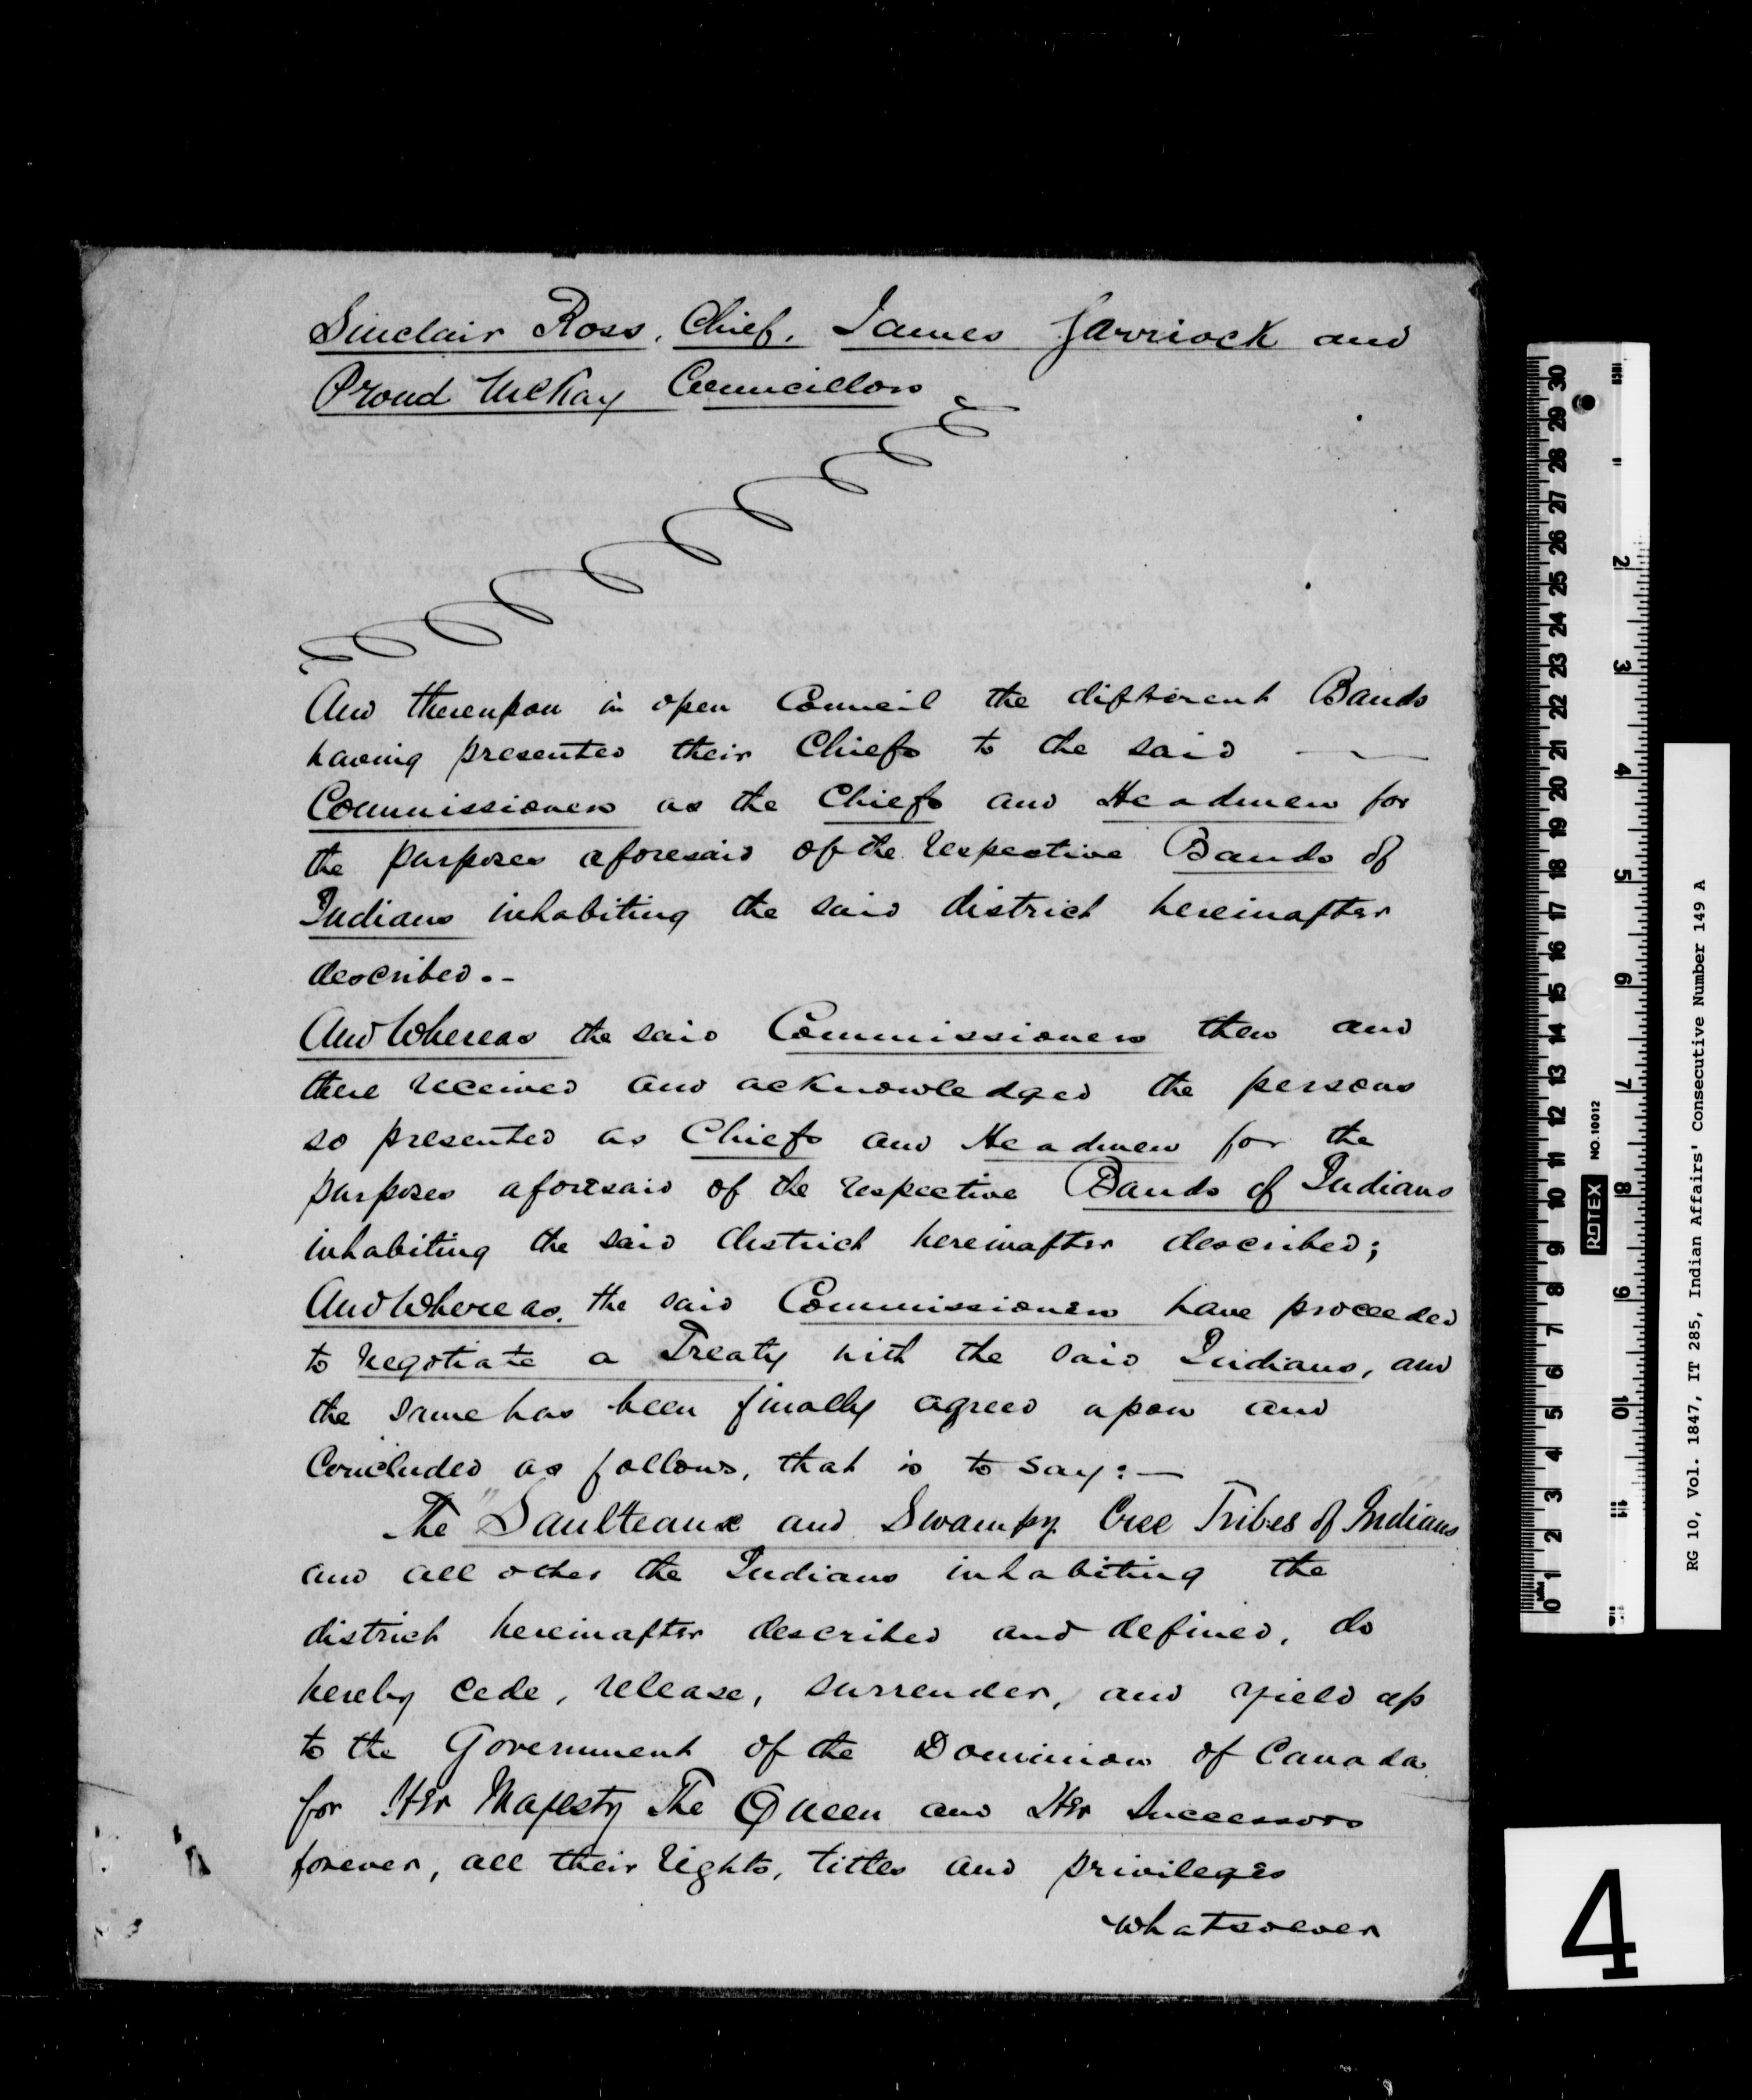 Sinclair Ross, Chief, James Garriock and
Proud McKay Councillors
And thereupon in open Council the different Bands
having presented their Chiefs to the said
Commissioners as the Chiefs and Headmen for
the purposes aforesaid of the respective Bands of
Indians inhabiting the said district hereinafter
described.-
And Whereas the said Commissioners then and
there received and acknowledged the persons
so presented as Chiefs and Headmen for the
purposes aforesaid of the respective Bands of Indians
inhabiting the said district hereinafter described;
And Whereas, the said Commissioners have proceeded
to negotiate a Treaty with the said Indians, and
the same has been finally agreed upon and
Concluded as follows, that is to say:—
The "Saulteaux and Swampy Cree Tribes of Indians"
and all other the Indians inhabiting the
district hereinafter described and defined, do
hereby cede, release, surrender, and yield up
to the Government of the Dominion of Canada
for Her Majesty The Queen and Her Successors
forever, all their rights, titles and privileges
whatsoever
RG 10, Vol. 1847, IT 285, Indian Affairs' Consecutive Number 149 A
30 29 28 27 26 25 24 23 22 21 20 19 18 17 16 15 14 13 12 11 10 9 8 7 6 5 4 3 2 1 0
2 3 4 5 6 7 8 9 10 11
ROTEX NO.10012
4